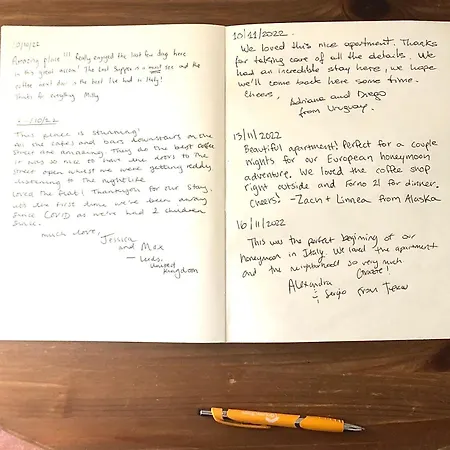 Amazing place!!! Really enjoyed the last few days here
in this great accom! The Last Supper is a must see and the
coffee next door is the best I've had in Italy!
Thanks for everything Milly
/10/22
This place is stunning!
All the cafes and bars downstairs on the
street are amazing. They do the best coffee
it was so nice to have the doors to the
street open whilst we were getting ready,
listening to the nightlife.
Loved the flat! Thankyou for our stay,
it's the first time we've been away
since COVID as we've had 2 children
since.
much love,
Jessica
and Max
— Leeds,
United
Kingdom
10/11/2022
We loved this nice apartment. Thanks
for taking care of all the details. We
had an incredible stay here, we hope
we'll come back here some time.
Cheers,
Adriana and Diego
from Uruguay.
13/11/2022
Beautiful apartment! Perfect for a couple
nights for our European honeymoon
adventure. We loved the coffee shop
right outside and Forno 21 for dinner.
Cheers! - Zach + Linnea from Alaska
16/11/2022
This was the perfect beginning of our
honeymoon in Italy. We loved the apartment
and the neighborhood so very much
Grazie!
Alexandra
Sergio from